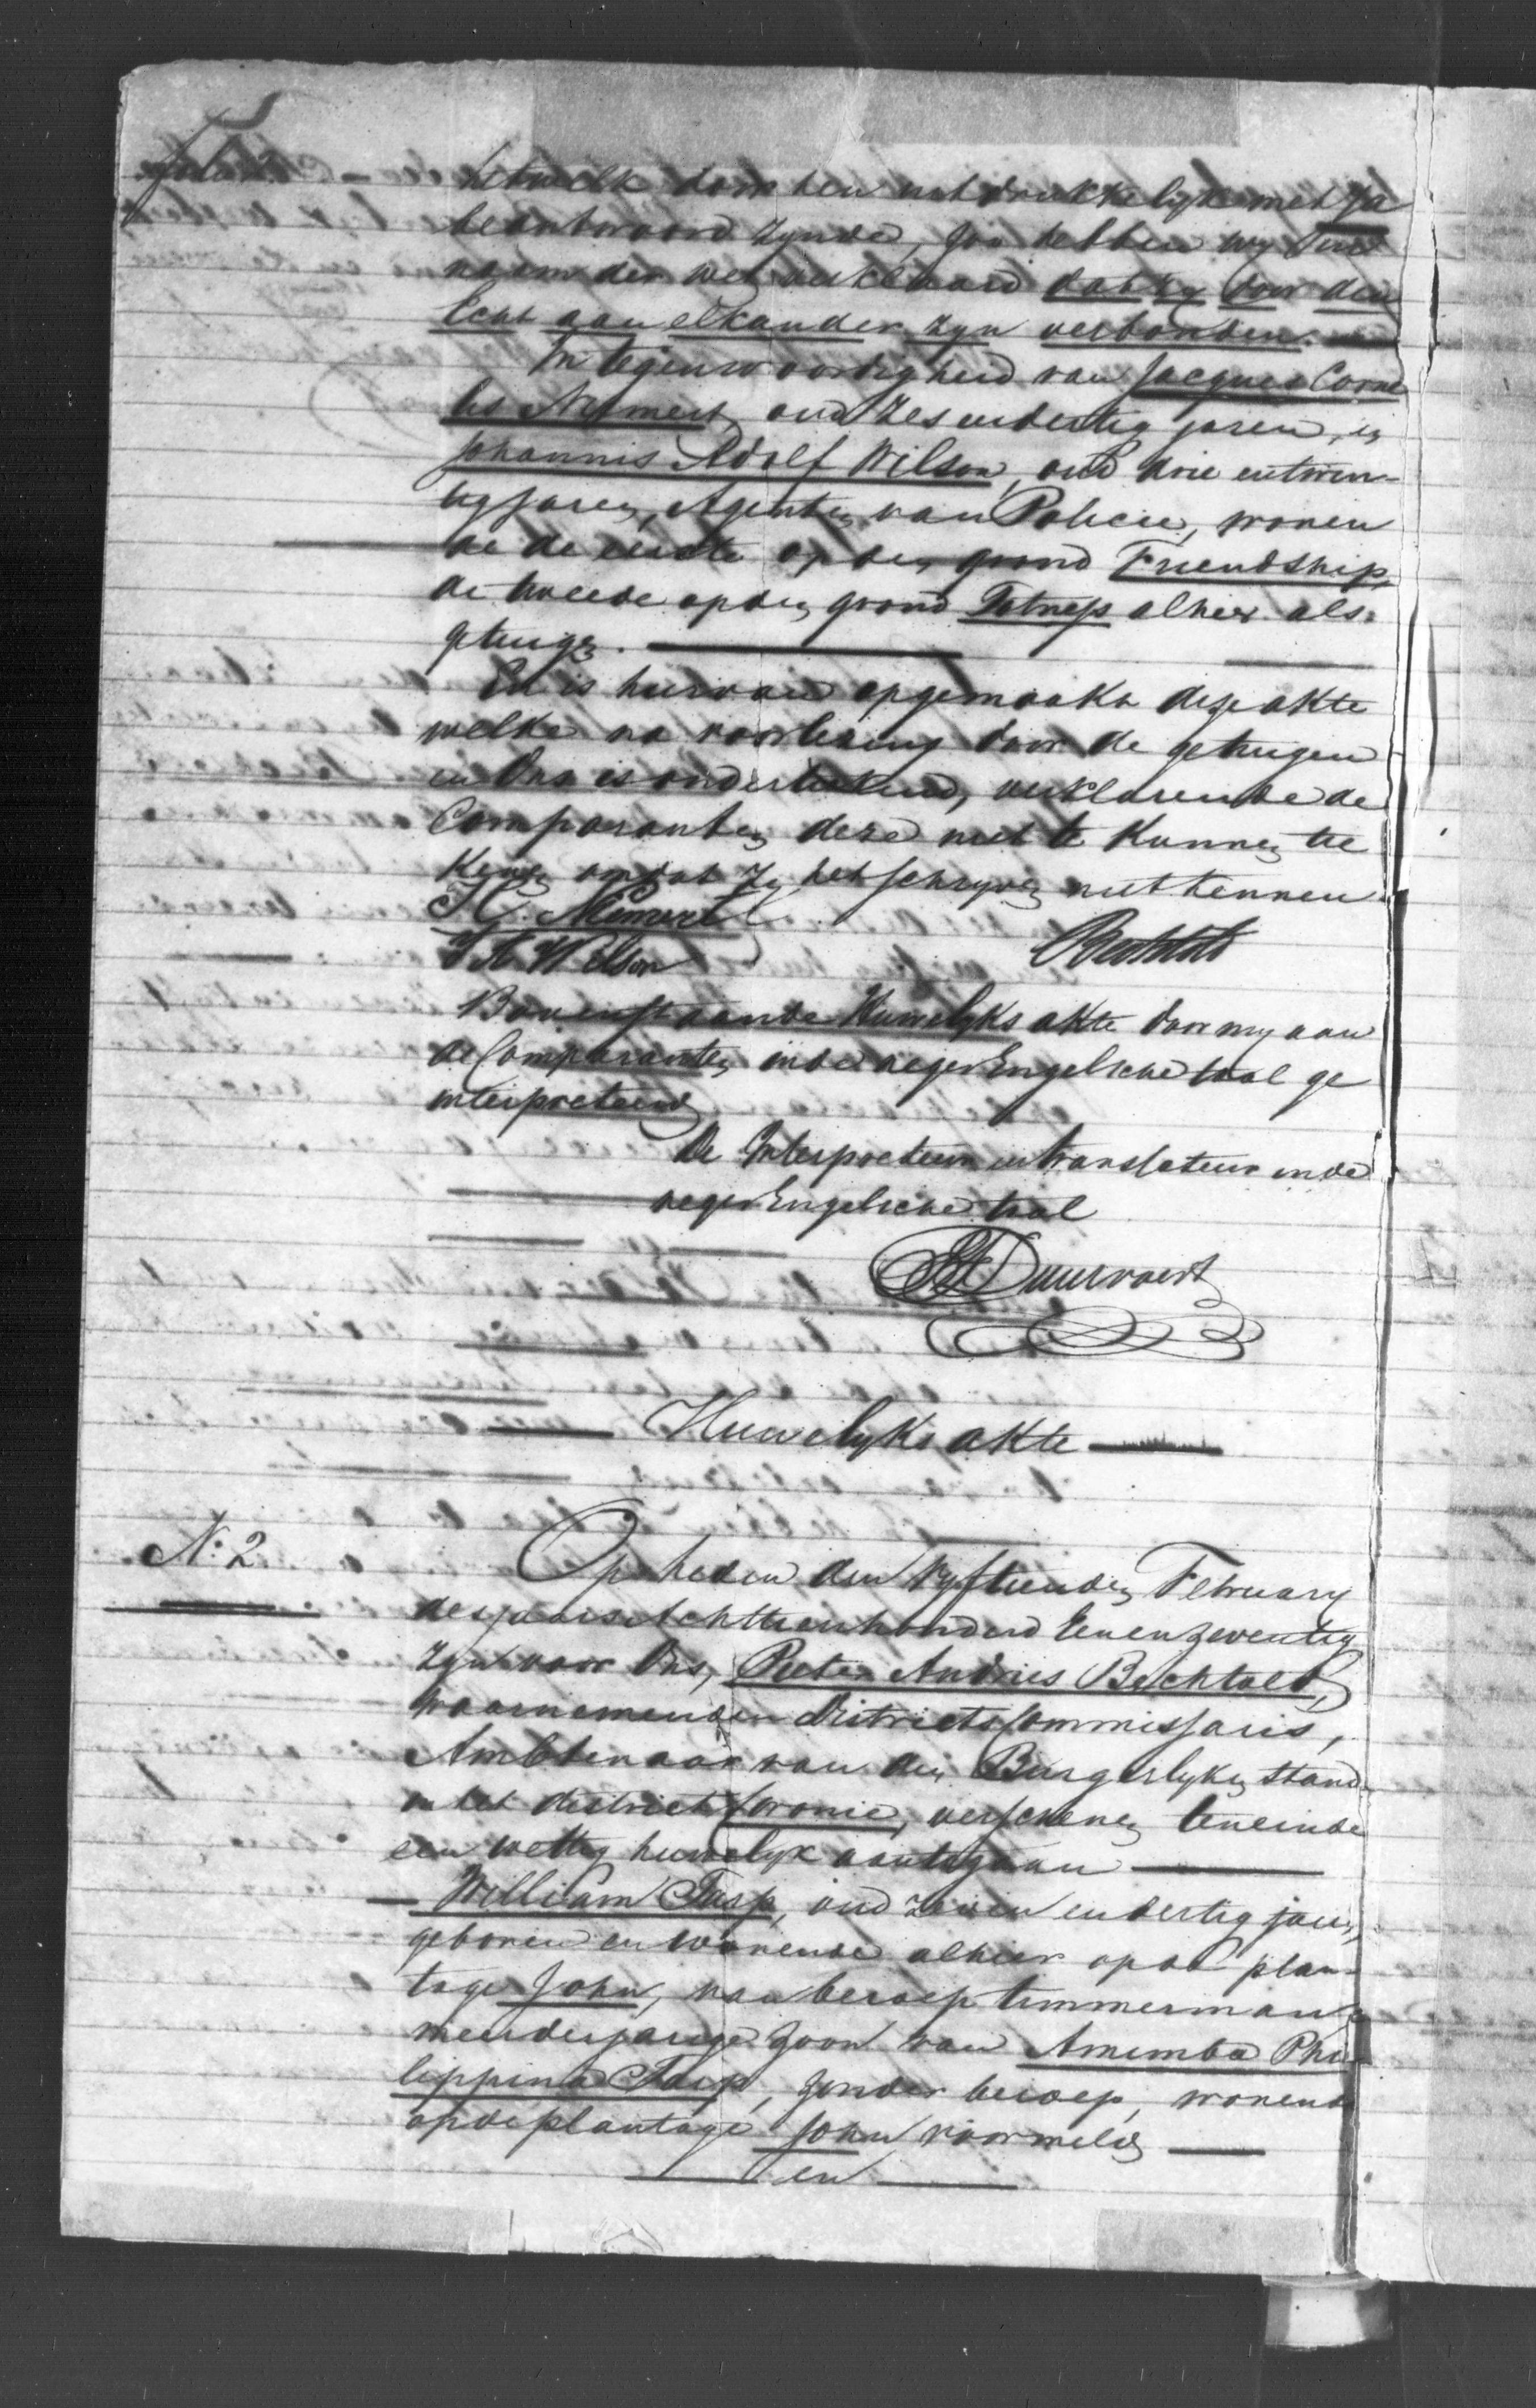 hetwelk door hen uitdrukkelyk met Ja
beantwoord zynde, zoo hebben wy in
naam der wet verklaard dat zy door den
Echt aan elkander zyn verbonden.
In tegenwoordigheid van Jacques Corne
lis Nemert, oud zes en dertig jaren, en
Johannis Adolf Wilson, oud drie entwin-
tig jaren, Agenten van Policie, wonen
de de eerste op den grond Friendship,
de tweede op den grond Totness alhier als
getuigen.
En is hiervan opgemaakt deze akte
welke na voorlezing door de getuigen
en Ons is onderteekend, verklarende de
Comparanten deze niet te kunnen tee
kenen omdat zy het schryven niet kennen
Nemert
J A Wilson
Bechtold
Bovenstaande Huwelyks akte door my aan
de Comparanten in de neger Engelsche taal ge
interpreteerd
De Interpreteur en translateur in de
neger Engelsche taal
Duurvoort
Huwelyks akte
No. 2
Op heden den vyftienden February
des jaars Achttienhonderd Een en zeventig
zyn voor Ons, Pieter Andries Bechtold,
waarnemenden Districts Commissaris,
Ambtenaar van den Burgerlyken Stand
in het district Coronie, verschenen teneinde
een wettig huwelyk aantegaan
William Tasp, oud zeven en dertig jaren,
geboren en wonende alhier op de plan-
tage John, van beroep timmerman,
meerderjarige zoon van Amimba Phi
lippina Tasp, zonder beroep, wonende
op de plantage John voormeld
en